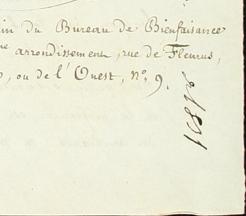 in du Bureau de Bienfaisance
me arrondissement, rue de Fleurus,
, ou de l'Ouest, nº 9.